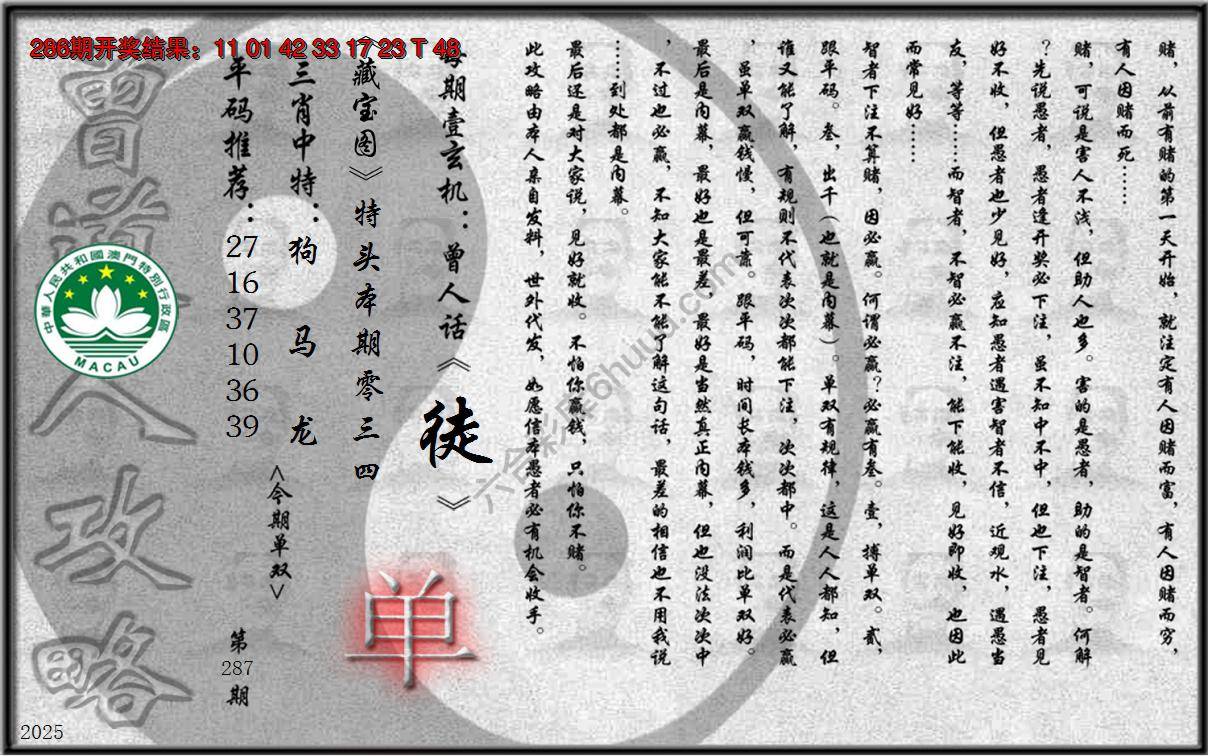 286期开奖结果：11 01 42 33 17 23 T 48
赌，从前有赌的第一天开始，就注定有人因赌而富，有人因赌而穷，
有人因赌而死……
赌，可说是害人不浅，但助人也多。害的是愚者，助的是智者。何解
？先说愚者，愚者逢开奖必下注，虽不知中不中，但也下注，愚者见
好不收，但愚者也少见好，应知愚者遇害智者不信，近观水，遇愚当
友，等等……而智者，不智必赢不注，能下能收，见好即收，也因此
而常见好……
智者下注不算赌，因必赢。何谓必赢？必赢有叁。壹，搏单双。贰，
跟平码。叁，出千（也就是内幕）。单双有规律，这是人人都知，但
谁又能了解，有规则不代表次次都能下注，次次都中。而是代表必赢
，虽单双赢钱慢，但可靠。跟平码，时间长本钱多，利润比单双好。
最后是内幕，最好也是最差，最好是当然真正内幕，但也没法次次中
，不过也必赢，不知大家能不能了解这句话，最差的相信也不用我说
……到处都是内幕。
最后还是对大家说，见好就收。不怕你赢钱，只怕你不赌。
此攻略由本人亲自发料，世外代发，如愿信本愚者必有机会收手。
每期壹玄机：曾人话《徒》
《藏宝图》特头本期零三四
单
三肖中特：狗 马 龙
<今期单双>
平码推荐：27 16 37 10 36 39
第287期
曾道人攻略
中華人民共和國澳門特別行政區
MACAU
2025